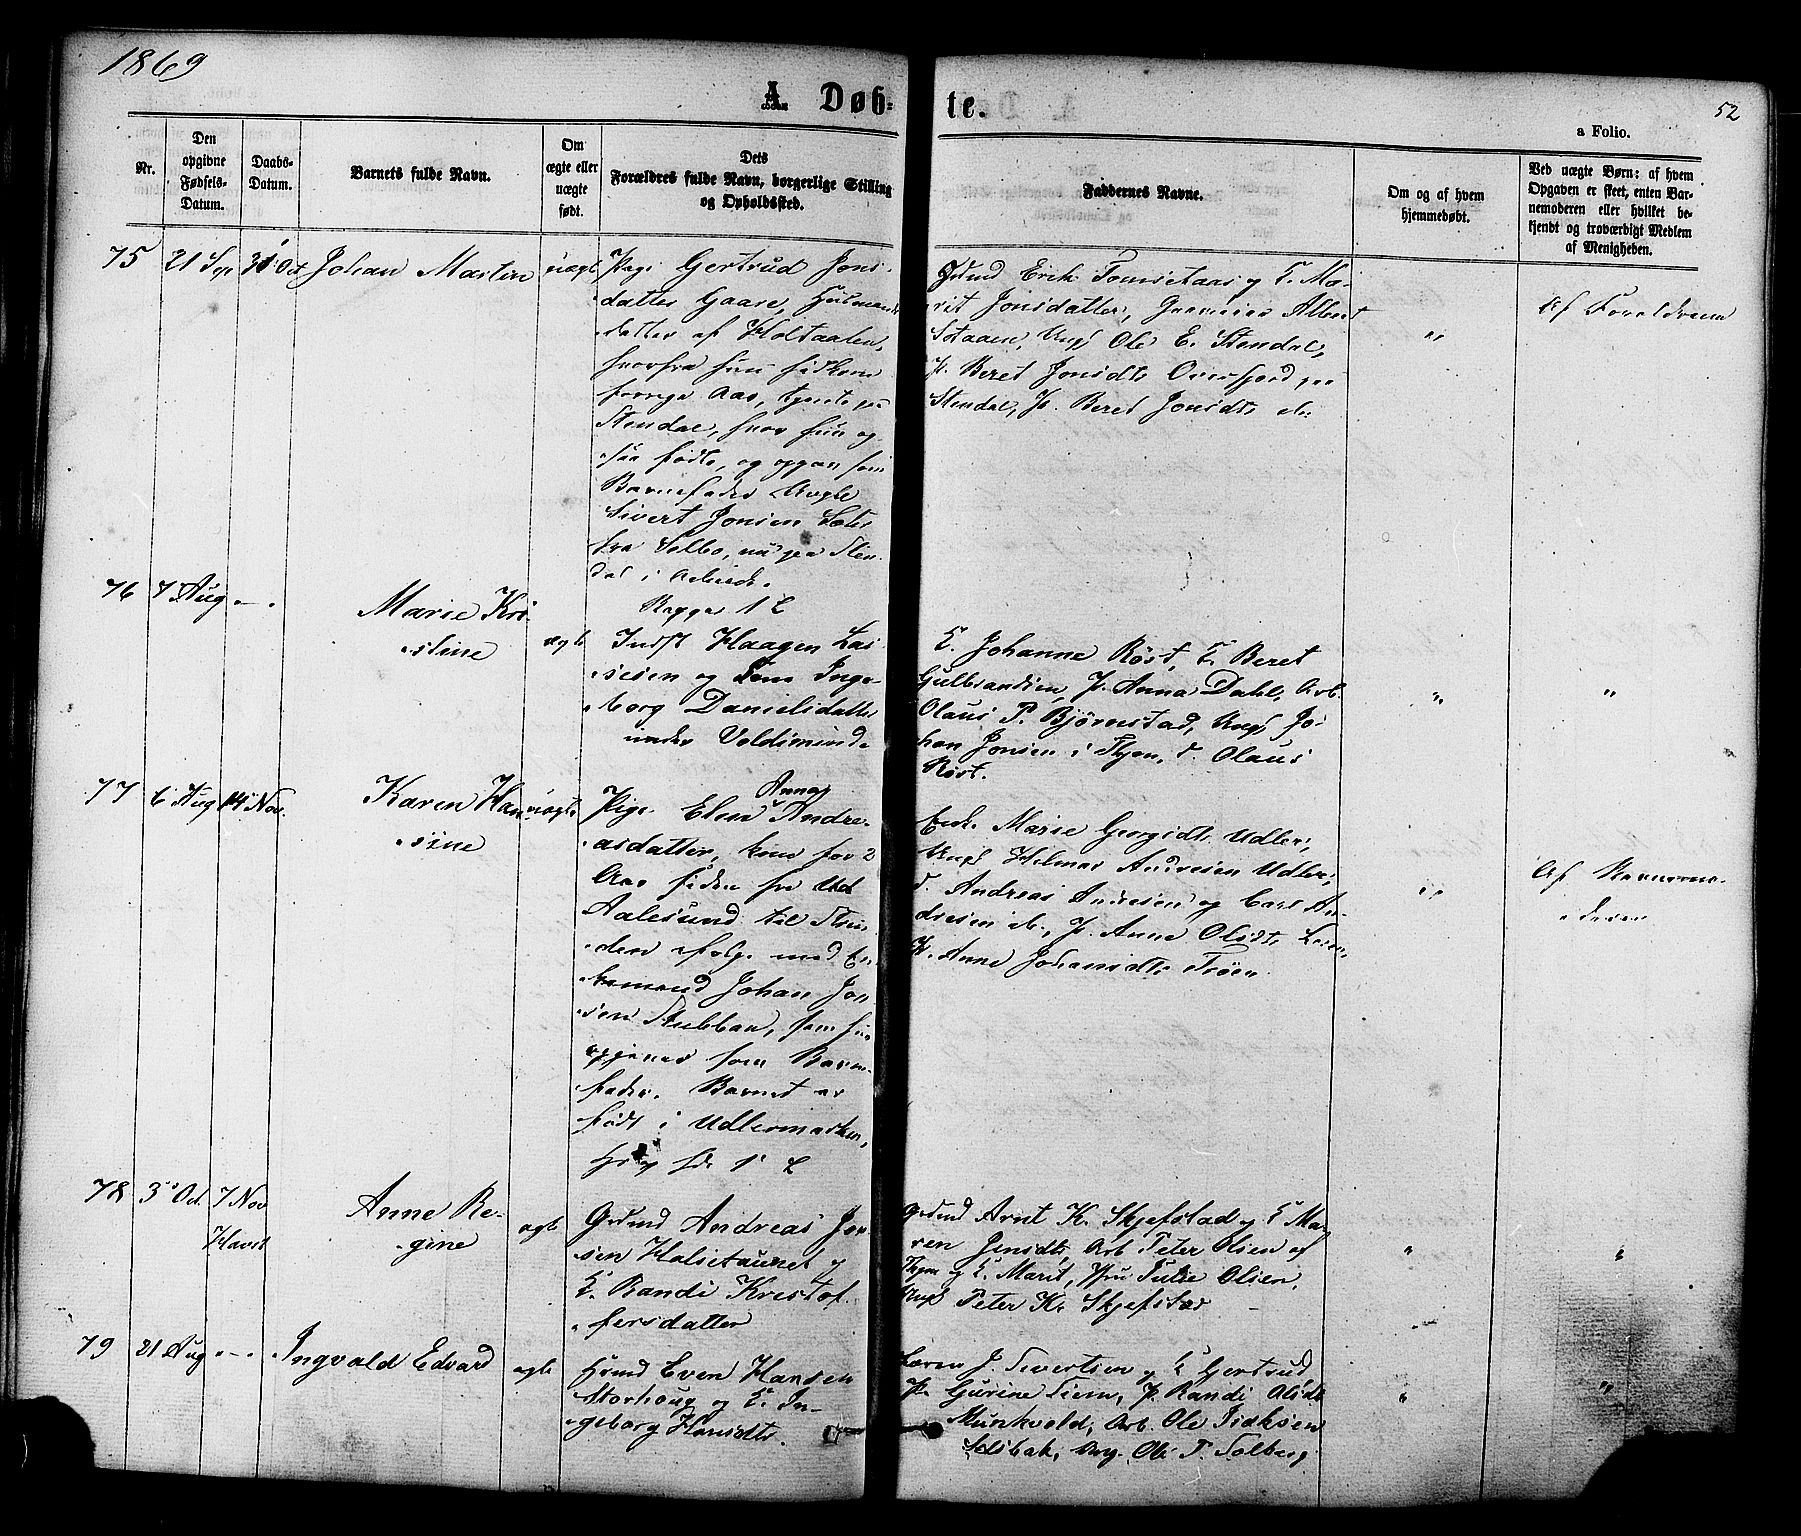 1869
A Døb-
te.
52
a Folio.
Nr.
Den opgivne Fødsels-Datum.
Daabs-Datum.
Barnets fulde Navn.
Om ægte eller uægte født.
Dets Forældres fulde Navn, borgerlige Stilling og Opholdssted.
Faddernes Navne.
Om og af hvem hjemmedøbt.
Ved uægte Børn: af hvem Opgaven er skeet, enten Barnemoderen eller hvilket bekjendt og troværdigt Medlem af Menigheden.
75
21 Sep
31 Oct
Johan Martin
uægte
Pige Gertrud Jons-
datter Gaare, Husmands
datter af Holtaalen,
hvorfra hun sidkom
forrige Aar, tjente paa
Stendal, hvor hun og-
saa fødte, og opgav som
Barnefader Ungk
Sivert Jonsen
fra Selbo, nu paa Sten-
dal i Arbeide.
Grbmd Erik Tomsetaas og K. Ma-
rit Jonsdatter, Albert
Ungk Ole E. Stendal,
P. Beret Jonsdtr paa
Stendal, P. Beret Jonsdtr
"
Af Forældrene
76
7 Aug
-
Marie Kri-
stine
ægte
1 L
Indst Haagen Las-
sesen og Inge-
borg Danielsdatter
under Voldsminde
K. Johanne Röst, K. Beret
Gulbrandsen, P. Anna Dahl, Arb.
Olaus P. Björnstad, Ungk Jo-
han Jonsen i Thjem, d. Olaus
Röst.
"
"
77
6 Aug
14 Nov.
Karen Han-
sine
uægte
Anna
Pige Elen Andre-
asdatter, kom for 2
Aar siden fra
Aalesund til Strin-
den i Følge med En-
kemand Johan Jon-
sen Stubban, som hun
opgiver som Barne-
fader. Barnet er
født i Udlermarken,
1 L
Enke Marie Georgsdtr Udler,
Ungk Helmer Andresen Udler,
d. Andreas Andresen og Carl An-
dresen ib., P. Anne Olsdtr
P. Anne Johansdtr Tröen
"
Af Barnemo-
deren
78
3 Oct.
7 Nov
Havst
Anne Re-
gine
ægte
Grbmd Andreas Jon-
sen Halsetaunet og
K. Randi Kristof-
fersdatter
Grbmd Arnt K. Skjefstad og K. Ma-
ren Jensdtr, Arb. Peter Olsen af
Thjem og K. Marit, Fru Julie Olsen,
Ungk Peter K. Skjefstad
"
"
79
21 Aug
-
Ingvald Edvard
ægte
Hsmd Even Hansen
Storhoug og K. In-
geborg Hansdtr.
J. Sivertsen og K. Gertrud
P. Gurine Tiem, P. Randi Olsdtr
Munkvold, Arb. Ole
Selsbak, Ung. Ole T. Solberg
"
"